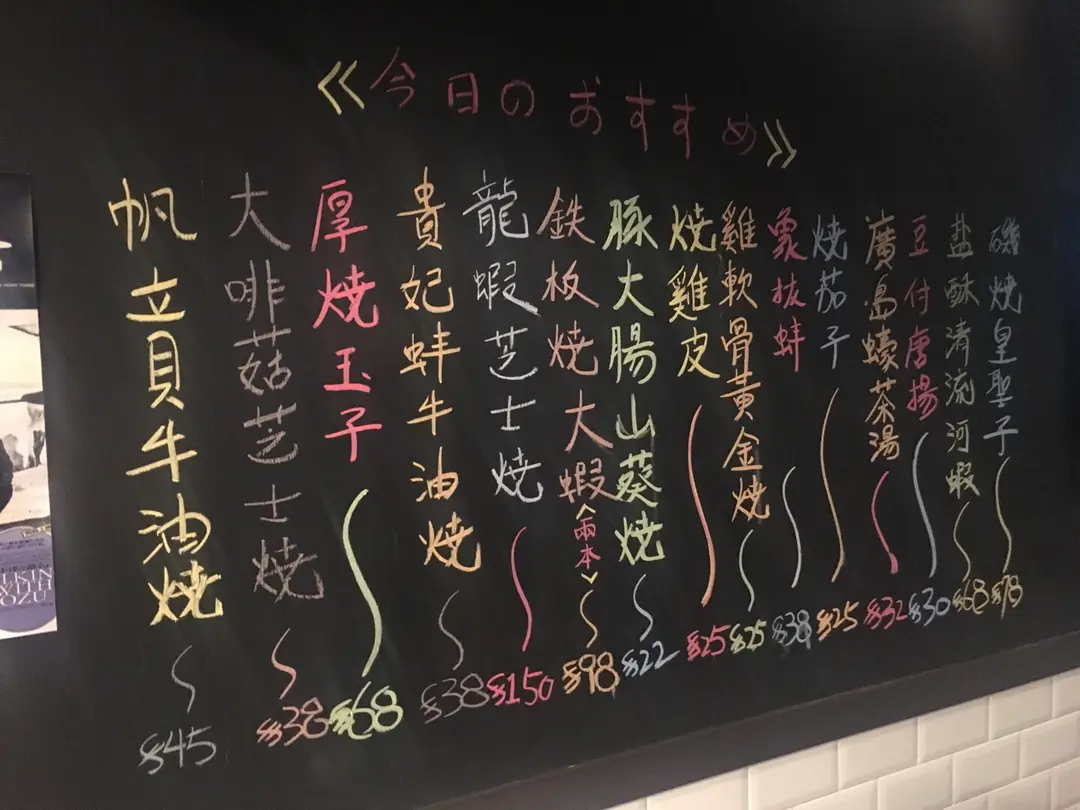 ≪今日のおすすめ≫
磯燒皇聖子 $78
盐酥清流河蝦 $68
豆付唐揚 $30
廣島蠔茶湯 $32
燒茄子 $25
象拔蚌 $38
雞軟骨黃金燒 $25
燒雞皮 $25
豚大腸山葵燒 $22
鉄板燒大蝦<兩本> $98
龍蝦芝士燒 $150
貴妃蚌牛油燒 $38
厚燒玉子 $68
大啡菇芝士燒 $38
帆立貝牛油燒 $45
LKIN
WITH
OZU